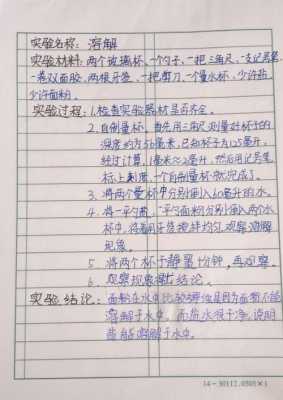 实验名称：溶解
实验材料：两个玻璃杯、一个勺子、一把三角尺、一支记号笔、
一卷双面胶、两根牙签、一把剪刀、一个量水杯、少许盐、
少许面粉。
实验过程：1.检查实验器材是否齐全。
2.自制量杯，首先用三角尺测量好杯子的
深度约为56毫米，已知杯子为125毫升，
经过计算，1毫米≈2毫升，然后用记号笔
标上刻度，一个自制量杯就完成了。
3.将两个量杯中分别倒入60毫升的水。
4.将一平勺盐、一平勺面粉分别倒入两个水
杯中，将用牙签搅拌均匀，观察溶解
现象。
5.将两个杯子静置十分钟，再观察。
6.观察现象，结论。
实验结论：面粉在水中比较浑浊是因为面粉不能
溶解于水中，而盐水很干净，说明
盐能溶解于水中。
14-30111.0505×1